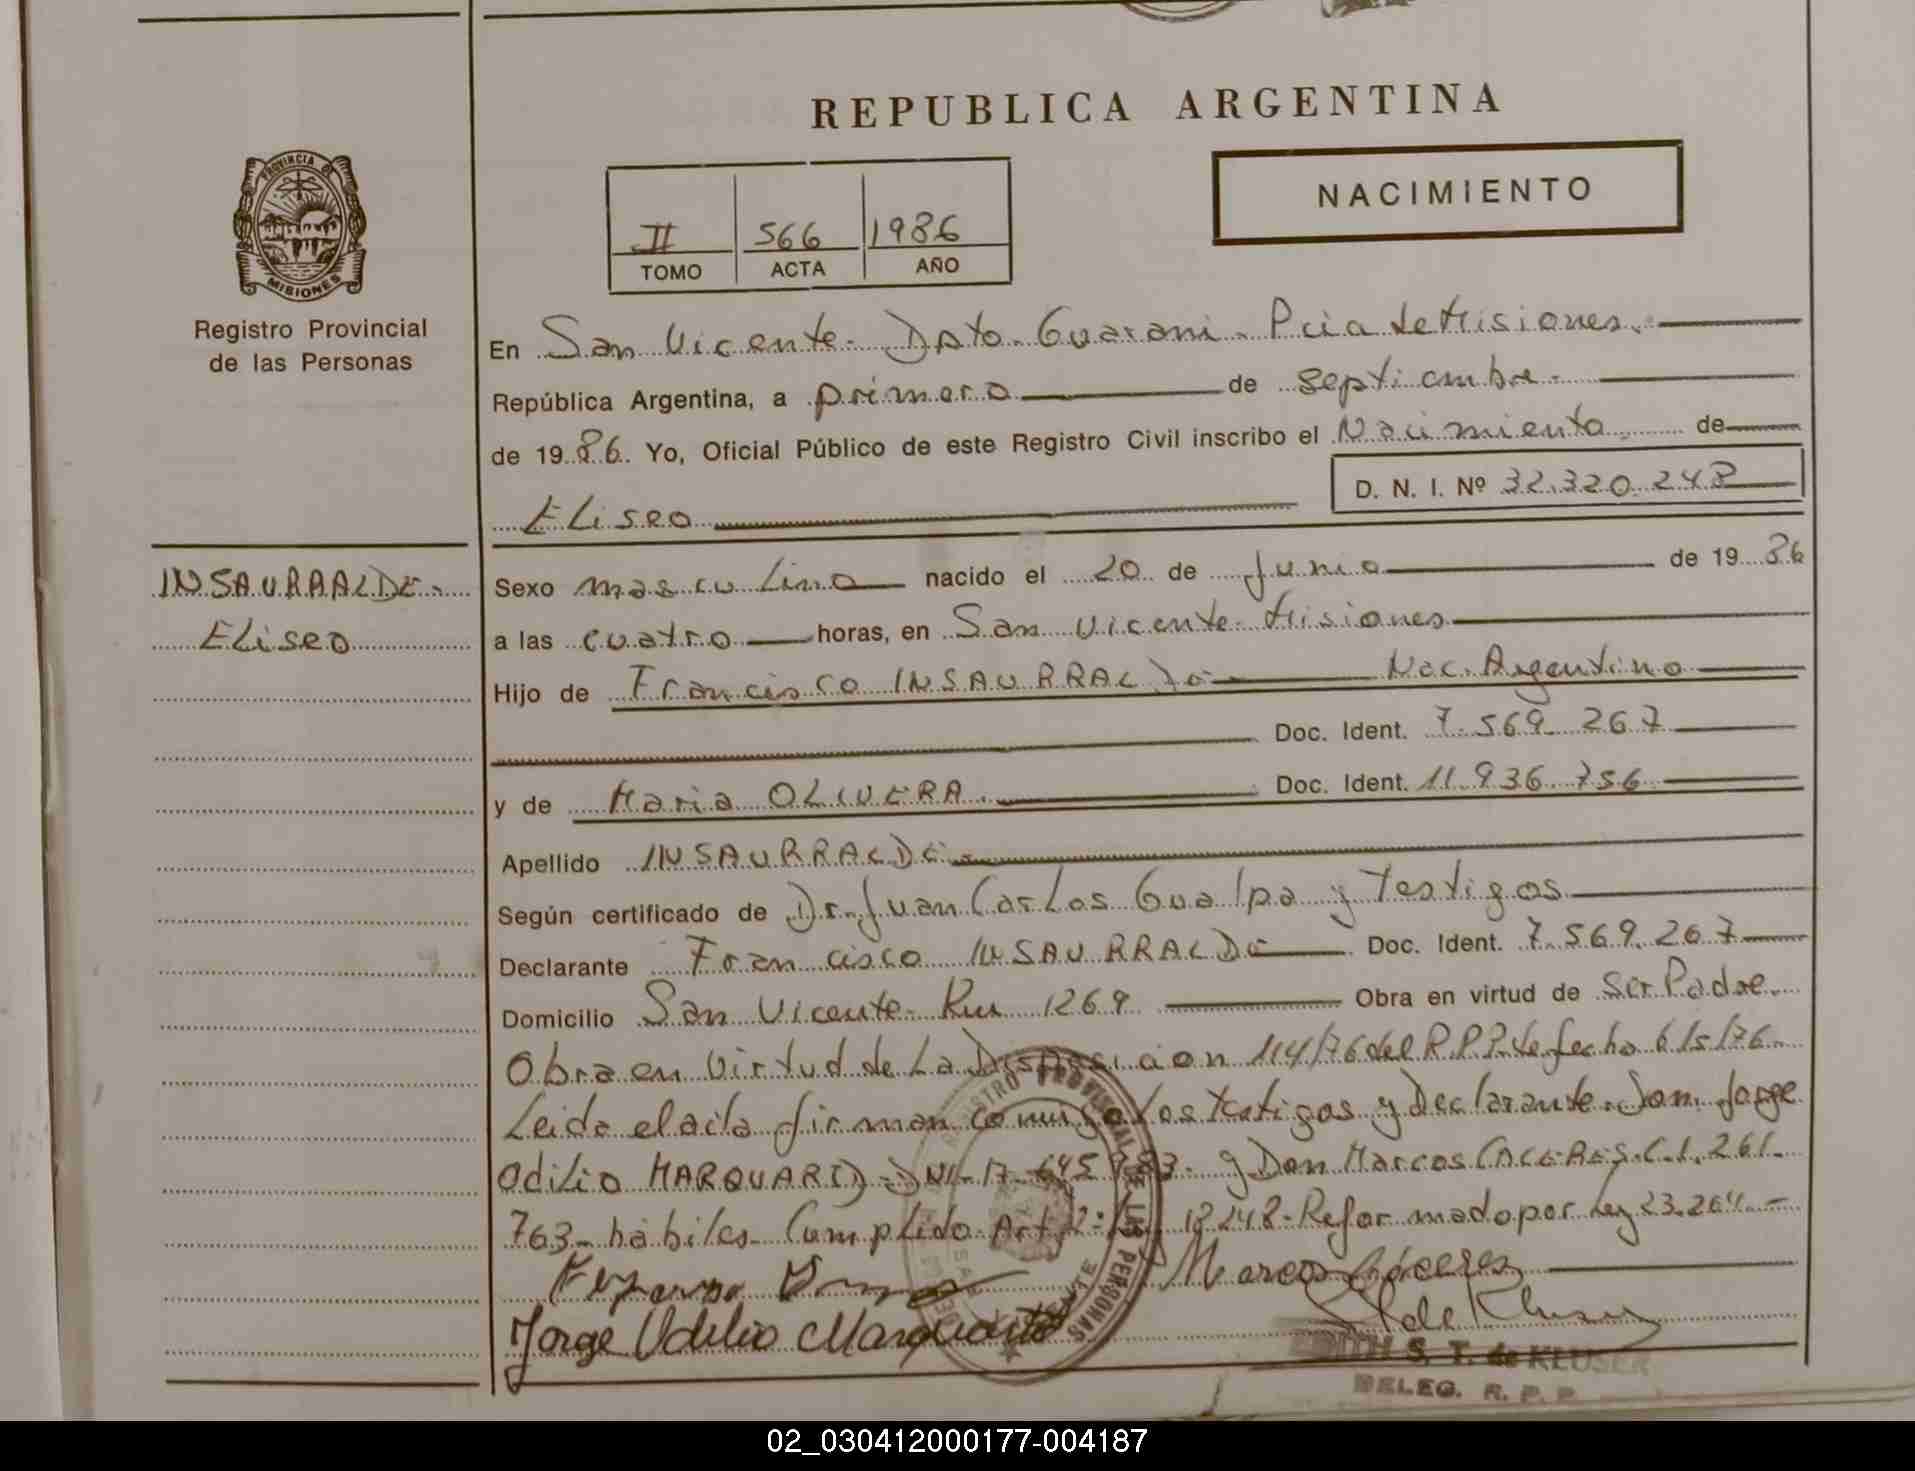 REPUBLICA ARGENTINA
NACIMIENTO
II 566 1986
TOMO ACTA AÑO
PROVINCIA DE
MISIONES
Registro Provincial
de las Personas
En San Vicente - Dpto. Guarani - Pcia de Misiones.
República Argentina, a primero de septiembre -
de 1986. Yo, Oficial Público de este Registro Civil inscribo el Nacimiento de
D. N. I. Nº 32.320.248
Eliseo
INSAURRALDE -
Eliseo
Sexo masculino nacido el 20 de Junio de 1986
a las cuatro horas, en San Vicente - Misiones
Hijo de Francisco INSAURRALDE Nac. Argentino
Doc. Ident. 7.569.267
y de Maria OLIVERA. Doc. Ident. 11.936.756
Apellido INSAURRALDE -
Según certificado de Dr. Juan Carlos Gualpa y Testigos
Declarante Francisco INSAURRALDE Doc. Ident. 7.569.267
Domicilio San Vicente - Km 1269 Obra en virtud de Ser Padre.
Obra en Virtud de La Disposicion 114/76 del R.P.P. de fecha 6/5/76 -
Leida el acta firman conmigo los testigos y Declarante - Don Jorge
Odilio MARQUARDT - DNI - 17.645. - y Don Marcos CACERES. C.I. 261.
763 - habiles - Cumplido Art. 2: Ley 18248 - Reformado por Ley 23.264 -
Marcos Cáceres
Jorge Odilio Marquardt
S. de Kluser
EDITH S. T. de KLUSER
DELEG. R. P. P.
REGISTRO PROVINCIAL DE LAS PERSONAS
02_030412000177-004187